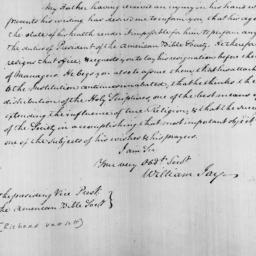 My Father having received an injury in his hand w
prevents his writing has desired me to inform you that his age
the state of his health render it impossible for him to perform any
The duties of President of the American Bible Society. He therefore
resigns that office, & requests you to lay his resignation before the
of Managers. He begs you to assure them that his attach
to the Institution continues unabated, that he thinks the
distribution of the Holy Scriptures one of the best means of
extending the influence of true Religion, & that the succ
of the Society in accomplishing that most important object
one of the subjects of his wishes & his prayers.
I am Sir
Your very obdt Servt
William Jay
the presiding Vice Prest
the American Bible Socty
(Richard